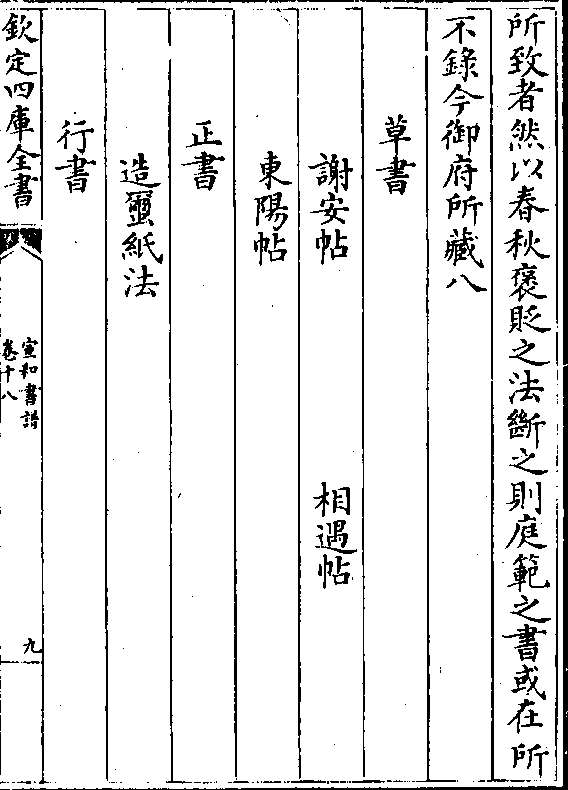 所致者然以春秋褒貶之法斷之則庭範之書或在所
不錄今御府所藏八
草書
謝安帖　相遇帖
東陽帖
正書
造蠒紙法
行書
欽定四庫全書
宣和書譜
卷十八
九